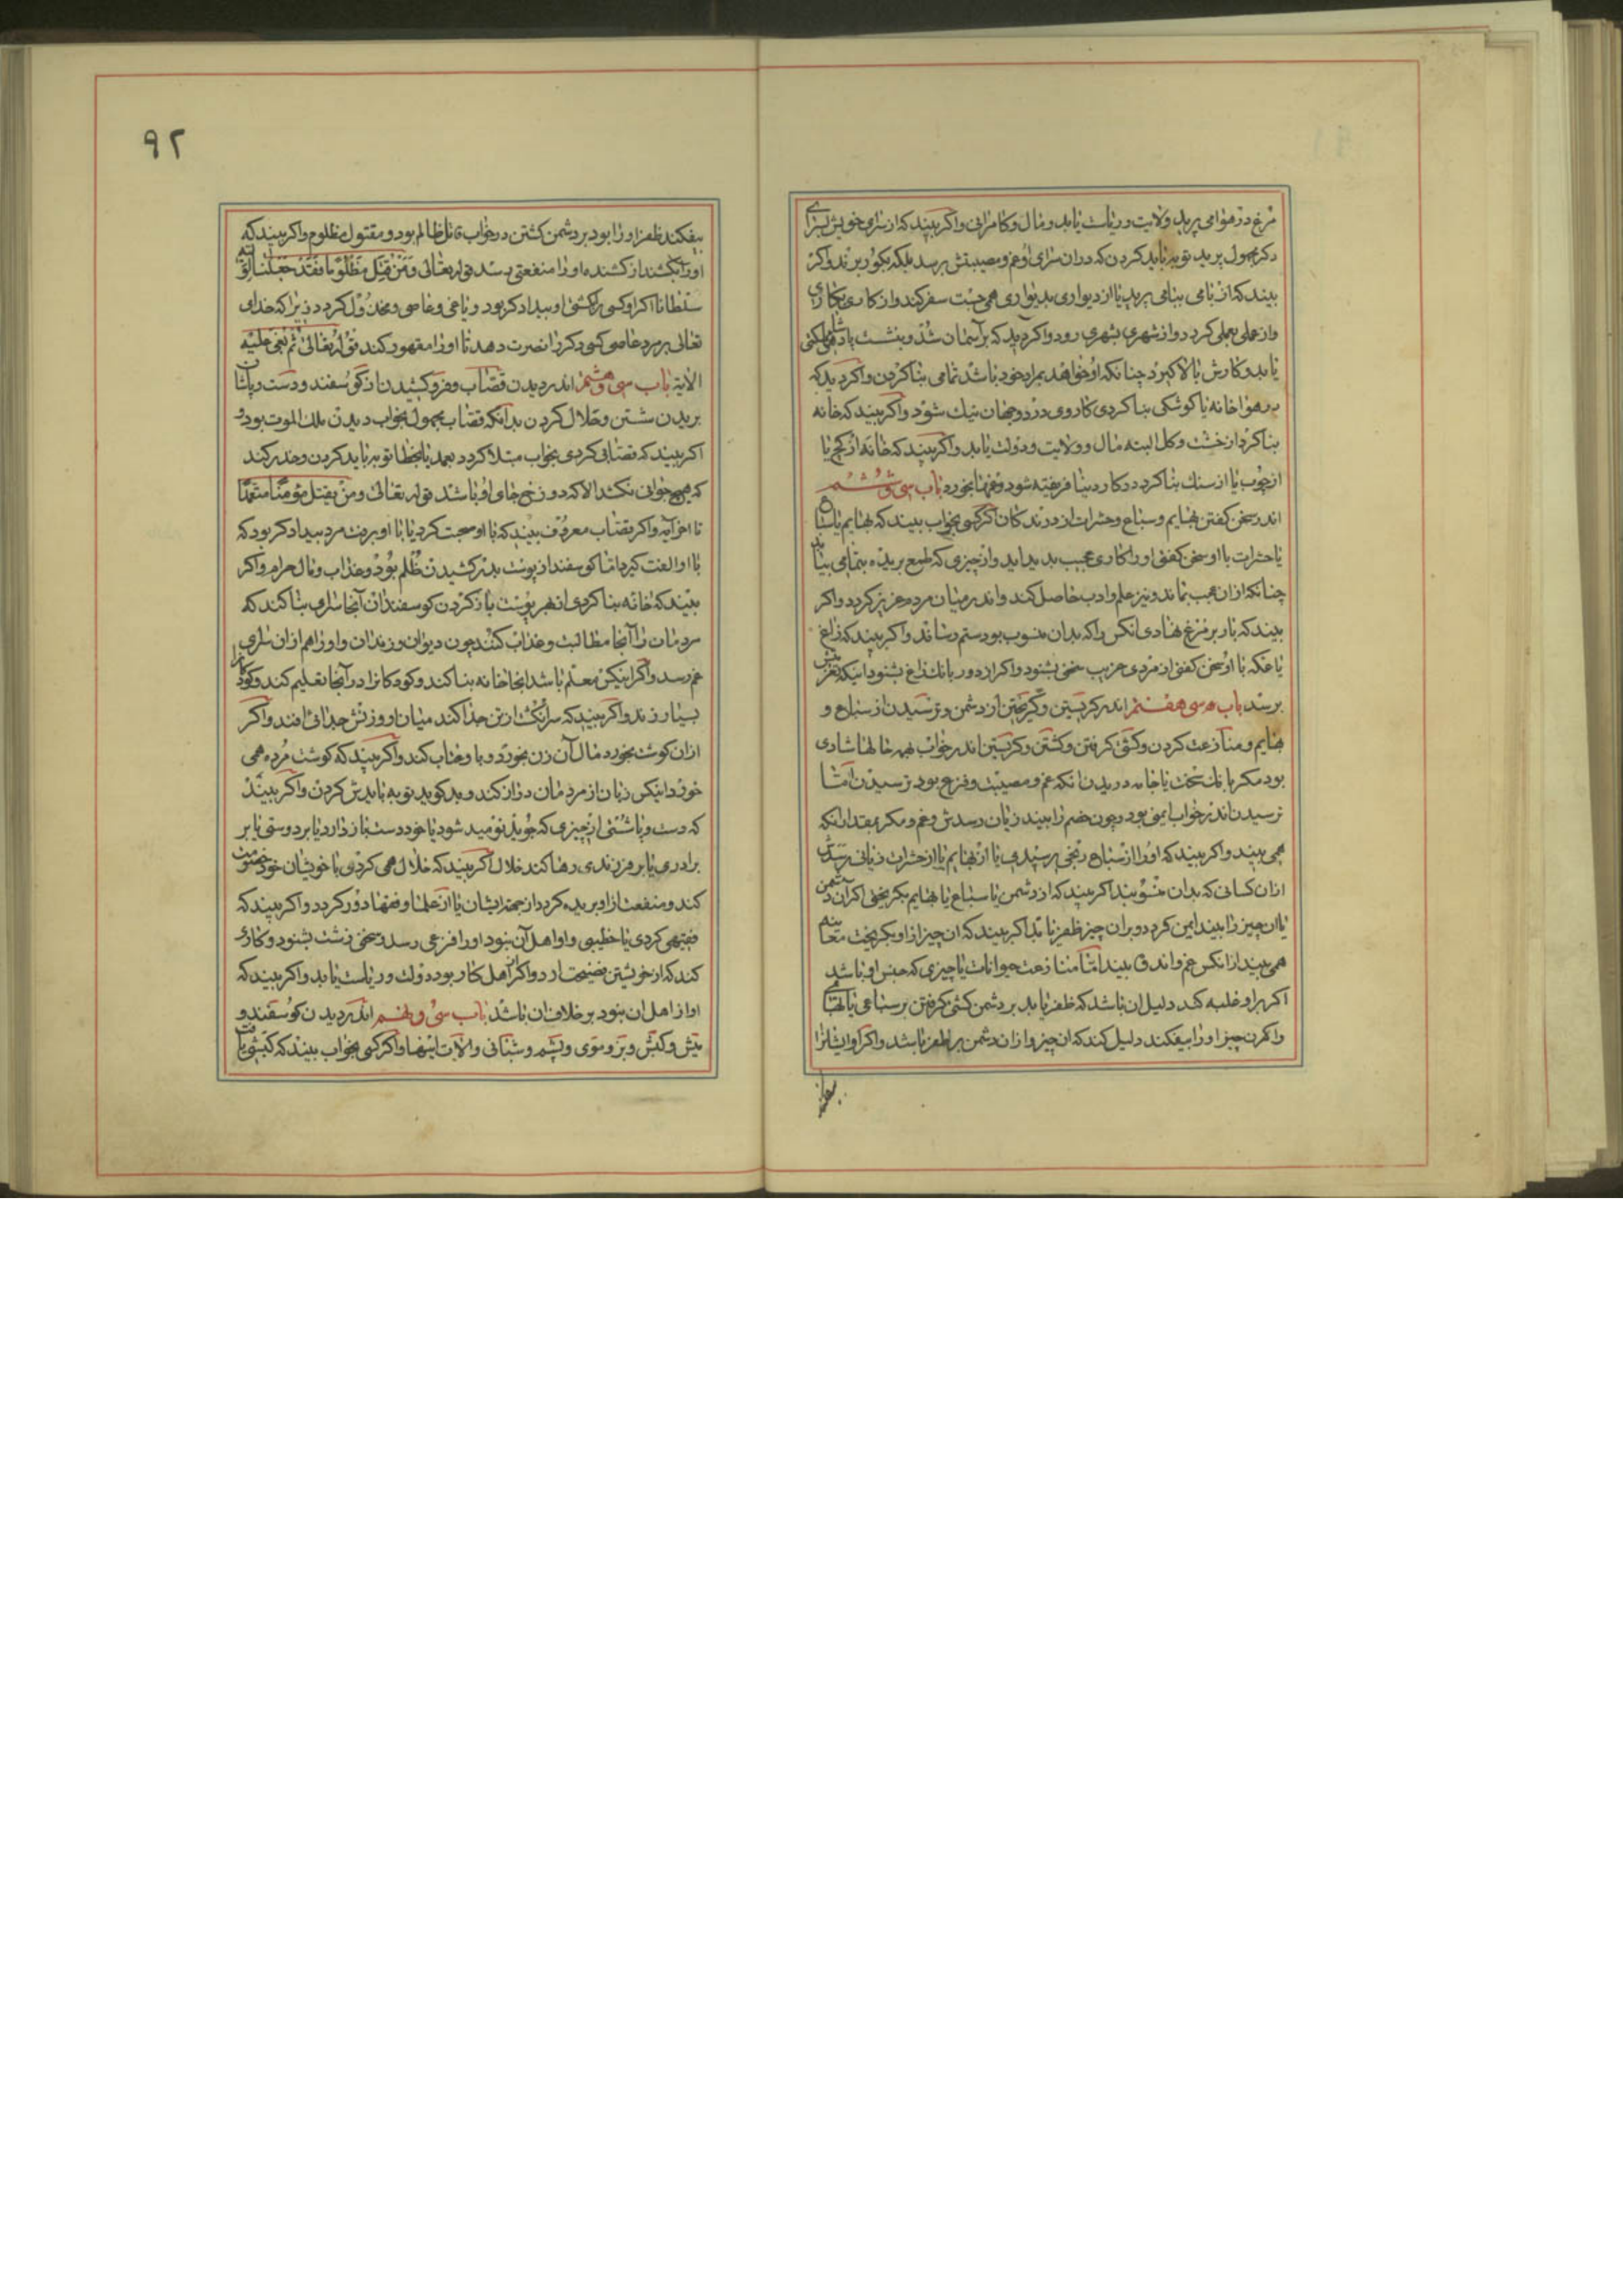 مرغ در هوا می پرید ولایت و ریاست یابد و مال و کامرانی واکر بیند که از سرای خویش بسرای
دکر مجهول پرید توبه باید کردن که دران سرای او غم و مصیبتش رسد بلکه بکور برند واکر
بیند که از بامی ببامی پرید یا از دیواری بدیواری همی جست سفر کند و از کاری بکاری
واز عملی بعملی کردد واز شهری بشهری رود واکر دید که بر آسمان شد و بنشست پادشاهی
یابد و کارش بالا کیرد چنانکه او خواهد بمراد خود باشد تمامی بنا کردن واکر دید که
در هوا خانه یا کوشکی بنا کردی کار وی در دو جهان نیک شود واکر بیند که خانه
بنا کرد از خشت و کل البته مال و ولایت و دولت یابد واکر بیند که خانه از کچ یا
از چوب یا از سنک بنا کرد در کار دنیا فریفته شود و غمها بخورد باب سی و ششم
اندر سخن کفتن بهایم و سباع و حشرات از درندکان اکر کسی بخواب بیند که بهایم یا سباع
یا حشرات با او سخن کفتی او را کاری عجیب بدید اید واز چیزی که طمع بریده بتمامی بیابد
چنانکه ازان عجب بماند و نیز علم وادب حاصل کند واندر میان مردم عزیز کردد واکر
بیند که بار بر مرغ نهادی انکس را که بدان منسوب بود ستم رساند واکر بیند که زاغ
یا عکه با او سخن کفتی از مردی غریب سخنی بشنود واکر از دور بانک زاغ بشنود انیکه
برسد باب سی هفتم اندر کریستن و کریختن از دشمن و ترسیدن از سباع و
بهایم و منازعت کردن و کشتی کرفتن و کشتن و کریستن اندر خواب بهمه حالها شادی
بود مکر بانک سخت یا جامه دریدن انکه غم و مصیبت و فزع بود ترسیدن اما
ترسیدن اندر خواب ایمنی بود و چون خصم را بیند زیان رسدش و غم و مکر بمقدار انکه
همی بیند واکر بیند که او را از سباع رنجی برسیدی یا از بهایم یا از حشرات زیانی رسدش
ازان کسانی که بدان منسوبند اکر بیند که از دشمن یا سباع یا بهایم بکریختی اکر آن دشمن
یا ان چیز را بیند ایمن کردد و بران چیز ظفر یابد اکر بیند که ان چیز از او بکریخت معاینه
همی بیند از انکس غم واندوه بیند اما منازعت حیوانات یا چیزی که جنس او باشد
اکر بر او غلبه کند دلیل ان باشد که ظفر یابد بر دشمن کشتی کرفتن بر سباعی یا بهایمی
واکر ان چیز او را بیفکند دلیل کند که ان چیز و ازان دشمن بر ظفر باشد واکر او ایشانرا
بیفکند
۹۲
بیفکند ظفر او را بود بر دشمن کشتن در خواب قاتل ظالم بود و مقتول مظلوم واکر بیند که
او را بکشند از کشنده او را منفعتی رسد قوله تعالی و من قتل مظلوما فقد جعلنا لولیه
سلطانا اکر او کسی را کشتی او بیدادکر بود و یاغی و عاصی و مخذول کردد زیرا که خدای
تعالی بر مرد عاصی کسی دکر را نصرت دهد تا او را مقهور کند قوله تعالی ثم بغی علیه
الایة باب سی و هشتم اندر دیدن قصاب و فرو کشیدن از کوسفند و دست و پاشان
بریدن شستن و حلال کردن بدانکه قصاب مجهول بخواب دیدن ملک الموت بود و
اکر بیند که قصابی کردی بخواب مبتلا کردد بعمد یا بخطا توبه باید کردن و حذر کند
که هیچ حیوانی نکشد الا که دوزخ جای او باشد قوله تعالی ومن یقتل مؤمنا متعمدا
تا اخر آیه واکر قصاب معروف بیند که با او صحبت کرد یا با او برفت مرد بیدادکر بود که
با او الفت کیرد اما کوسفند از پوست بدر کشیدن ظلم بود و عذاب و مال حرام واکر
بیند که خانه بنا کردی از بهر پوست باز کردن کوسفندان آنجا سرای بنا کند که
مردمان را آنجا مطالبت و عذاب کنند چون دیوان و زندان و او را هم ازان سرای
غم رسد واکر اینکس معلم باشد انجا خانه بنا کند و کودکانرا در آنجا تعلیم کند و کودکانرا
بسیار زند واکر بیند که سر انکشت از تن جدا کند میان او و زنش جدائی افتد واکر
ازان کوشت بخورد مال آن زن بخورد و با وی عتاب کند واکر بیند که کوشت مرده همی
خورد انیکس زبان از مردمان دراز کند و بد کوید توبه بایدش کردن واکر بیند
که دست و پا شستی از چیزی که جوید نومید شود یا خود دست باز دارد یا بر دوستی یا بر
برادری یا بر فرزندی رها کند خلال اکر بیند که خلال همی کردی با خویشان خود خصومت
کند و منفعت از او بریده کردد از جهت ایشان یا از علما و فقها دور کردد واکر بیند که
فقیهی کردی یا خطیبی و او اهل آن نبود او را فزعی رسد و سخنی زشت بشنود و کاری
کند که از خویشتن فضیحت ارد واکر از اهل کار بود دولت و ریاست یابد واکر بیند که
او از اهل ان نبود بر خلاف ان باشد باب سی و نهم اندر دیدن کوسفند و
میش و کبش و بز و موی و پشم و شبانی و الات اینها واکر کسی بخواب بیند که کبشی یافت